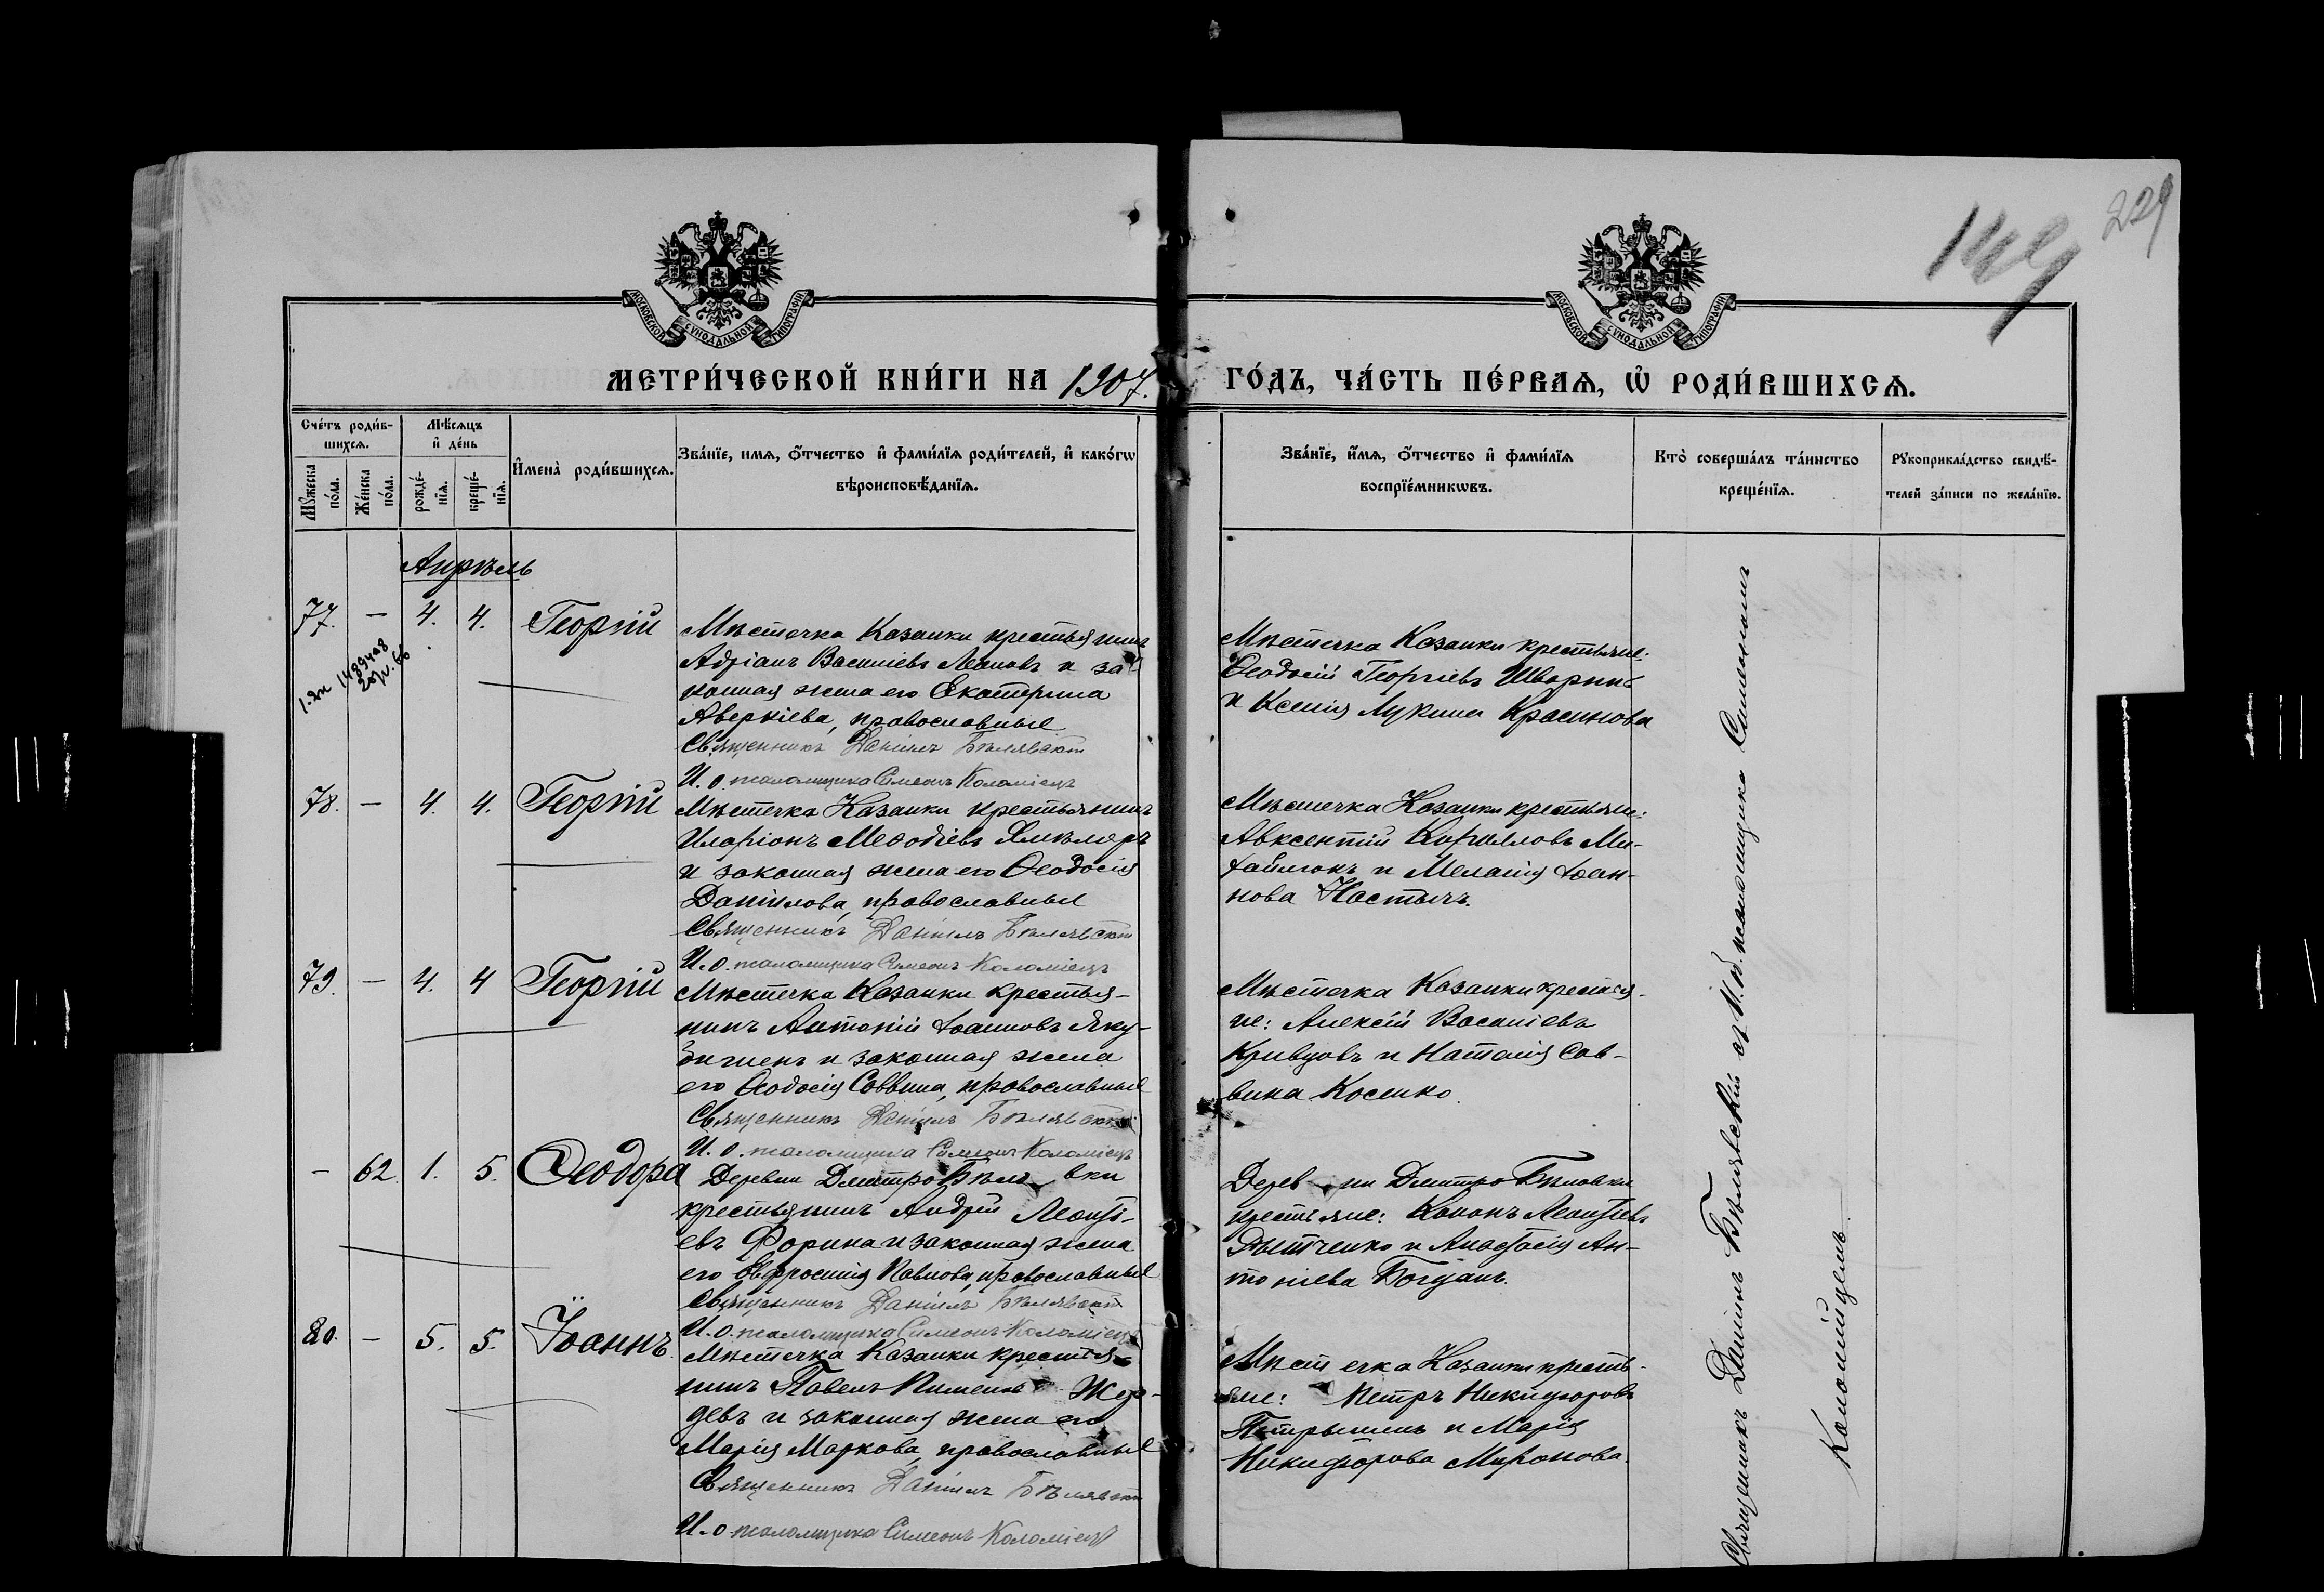 229
МОСКОВСКОЙ СѴНОДАЛЬНОЙ ТИПОГРАФІИ
МОСКОВСКОЙ СѴНОДАЛЬНОЙ ТИПОГРАФІИ
МЕТРИ́ЧЕСКОЙ КНИ́ГИ НА 1907. ГО́ДЪ, ЧА́СТЬ ПЕ́РВАѦ, Ѡ҆ РОДИ́ВШИХСѦ.
Сче́тъ роди́в-
шихсѧ.
Мꙋ́жеска по́ла.
Же́нска по́ла.
Мѣ́сѧцъ и҆ де́нь
рожде́-
нїѧ.
креще́-
нїѧ.
И҆мена̀ роди́вшихсѧ.
Зва́нїе, имѧ, ѻ҆́тчество и҆ фами́лїѧ роди́телей, и҆ како́гѡ
вѣроисповѣ́данїѧ.
Зва́нїе, и҆́мѧ, ѻ҆́тчество и҆ фами́лїѧ
воспрїе́мникѡвъ.
Кто̀ соверша́лъ та́инство
креще́нїѧ.
Рꙋкоприкла́дство свидѣ́-
телей за́писи по жела́нїю.
Апрѣль
77. — 4. 4. Георгій
Мѣстечка Казанки крестьянинъ
Адріанъ Василіевъ Леновъ и за-
конная жена его Екатерина
Аверкіева, православные
Священникъ Даніилъ Бѣлявскій
И. о. псаломщика Симеонъ Коломіецъ
Мѣстечка Казанки крестьяне:
Ѳеодосій Георгіевъ
и Ксенія Лукина Краснова
78. — 4. 4. Георгій
Мѣстечка Казанки крестьянинъ
Иларіонъ Меѳодіевъ
и законная жена его Ѳеодосія
Даніилова, православные
Священникъ Даніилъ Бѣлявскій
И. о. псаломщика Симеонъ Коломіецъ
Мѣстечка Казанки крестьяне:
Авксентій Кирилловъ Ми-
хайлюкъ и Меланія Іоан-
нова
79. — 4. 4 Георгій
Мѣстечка Казанки крестья-
нинъ Антоній Іоанновъ Яку-
и законная жена
его Ѳеодосія Саввина, православные
Священникъ Даніилъ Бѣлявскій
И. о. псаломщика Симеонъ Коломіецъ
Мѣстечка Казанки крестья-
не: Алексій Василіевъ
Кривцовъ и Наталія Сав-
вина Косенко.
— 62. 1. 5. Ѳеодора
Деревни Дмитро Бѣло вки
крестьянинъ Андрей Леонті-
евъ Форина и законная жена
его Евфросинія Павлова, православные
Священникъ Даніилъ Бѣлявскій
И. о. псаломщика Симеонъ Коломіецъ
Дерев ни Дмитро Бѣловки
крестьяне: Кононъ Леонтіевъ
и Анастасія Ан-
тоніева Богданъ.
80. — 5. 5. Іоаннъ
Мѣстечка Казанки крестья-
нинъ Павелъ Пименовъ
и законная жена его
Марія Маркова, православные
Священникъ Даніилъ Бѣлявскій
И. о. псаломщика Симеонъ Коломіецъ
Мѣст ечка Казанки кресть-
яне: Петръ Никифоровъ
и Марія
Никифорова Миронова.
Священникъ Даніилъ Бѣлявскій съ И. д. псаломщика Симеономъ
Коломійцемъ.